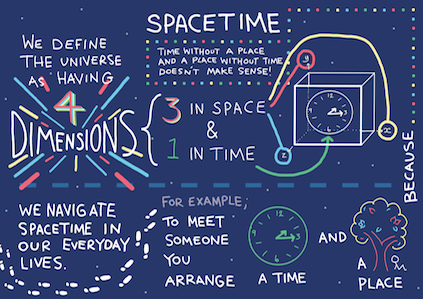 SPACETIME
TIME WITHOUT A PLACE
AND A PLACE WITHOUT TIME
DOESN'T MAKE SENSE!
WE DEFINE
THE UNIVERSE
AS HAVING
4
DIMENSIONS
3 IN SPACE
&
1 IN TIME
y
x
z
12
3
6
9
BECAUSE
WE NAVIGATE
SPACETIME IN
OUR EVERYDAY
LIVES.
FOR EXAMPLE,
TO MEET
SOMEONE
YOU
ARRANGE
12
3
6
9
A TIME
AND
A
PLACE